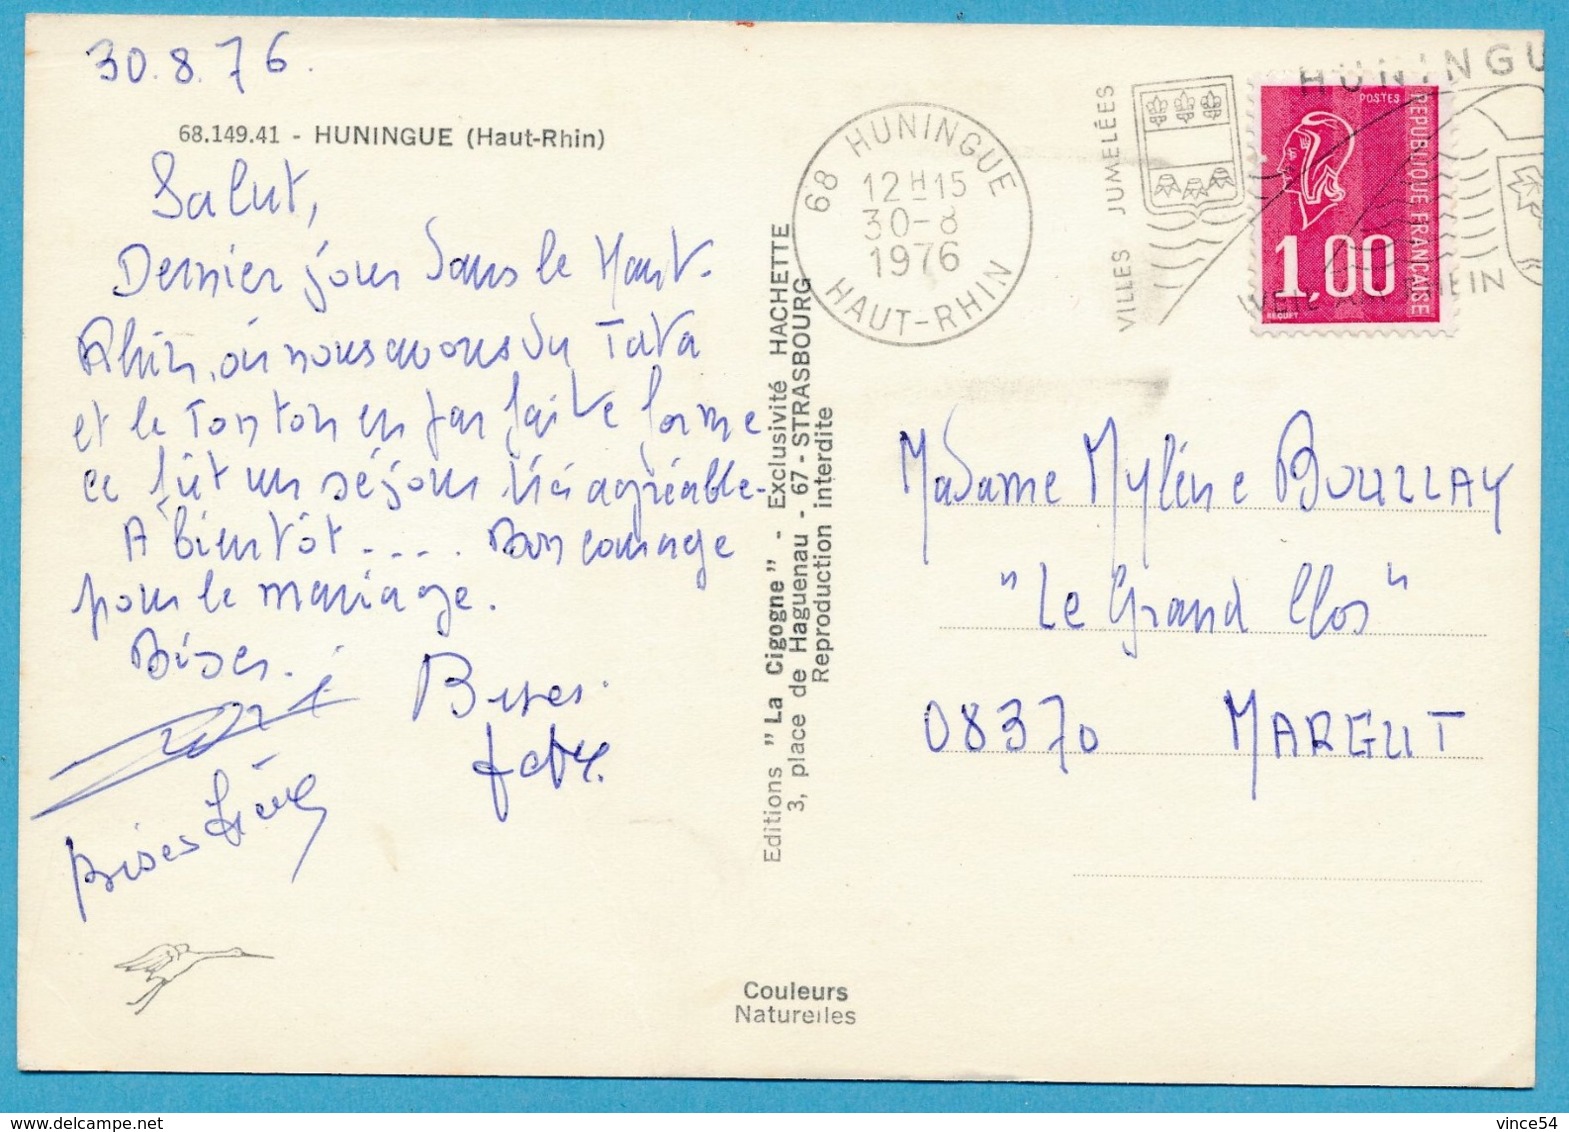 30.8.76.
68.149.41 - HUNINGUE (Haut-Rhin)
Salut,
Dernier jour dans le Haut-
Rhin, où nous avons vu Tata
et le Tonton en parfaite forme
ce fût un séjour très agréable.
A bientôt .... Bon courage
pour le mariage.
Bises.
Bises.
Bises
Editions "La Cigogne" - Exclusivité HACHETTE
3, place de Haguenau - 67 - STRASBOURG
Reproduction interdite
Couleurs
Naturelles
68 HUNINGUE
12H15
30-8
1976
HAUT-RHIN
VILLES JUMELÉES
HUNINGU
WEIL AM RHEIN
POSTES
REPUBLIQUE FRANÇAISE
1,00
BEQUET
Madame Mylène BOUILLAY
"Le Grand Clos"
08370 MARGUT
delcampe.net
vince54